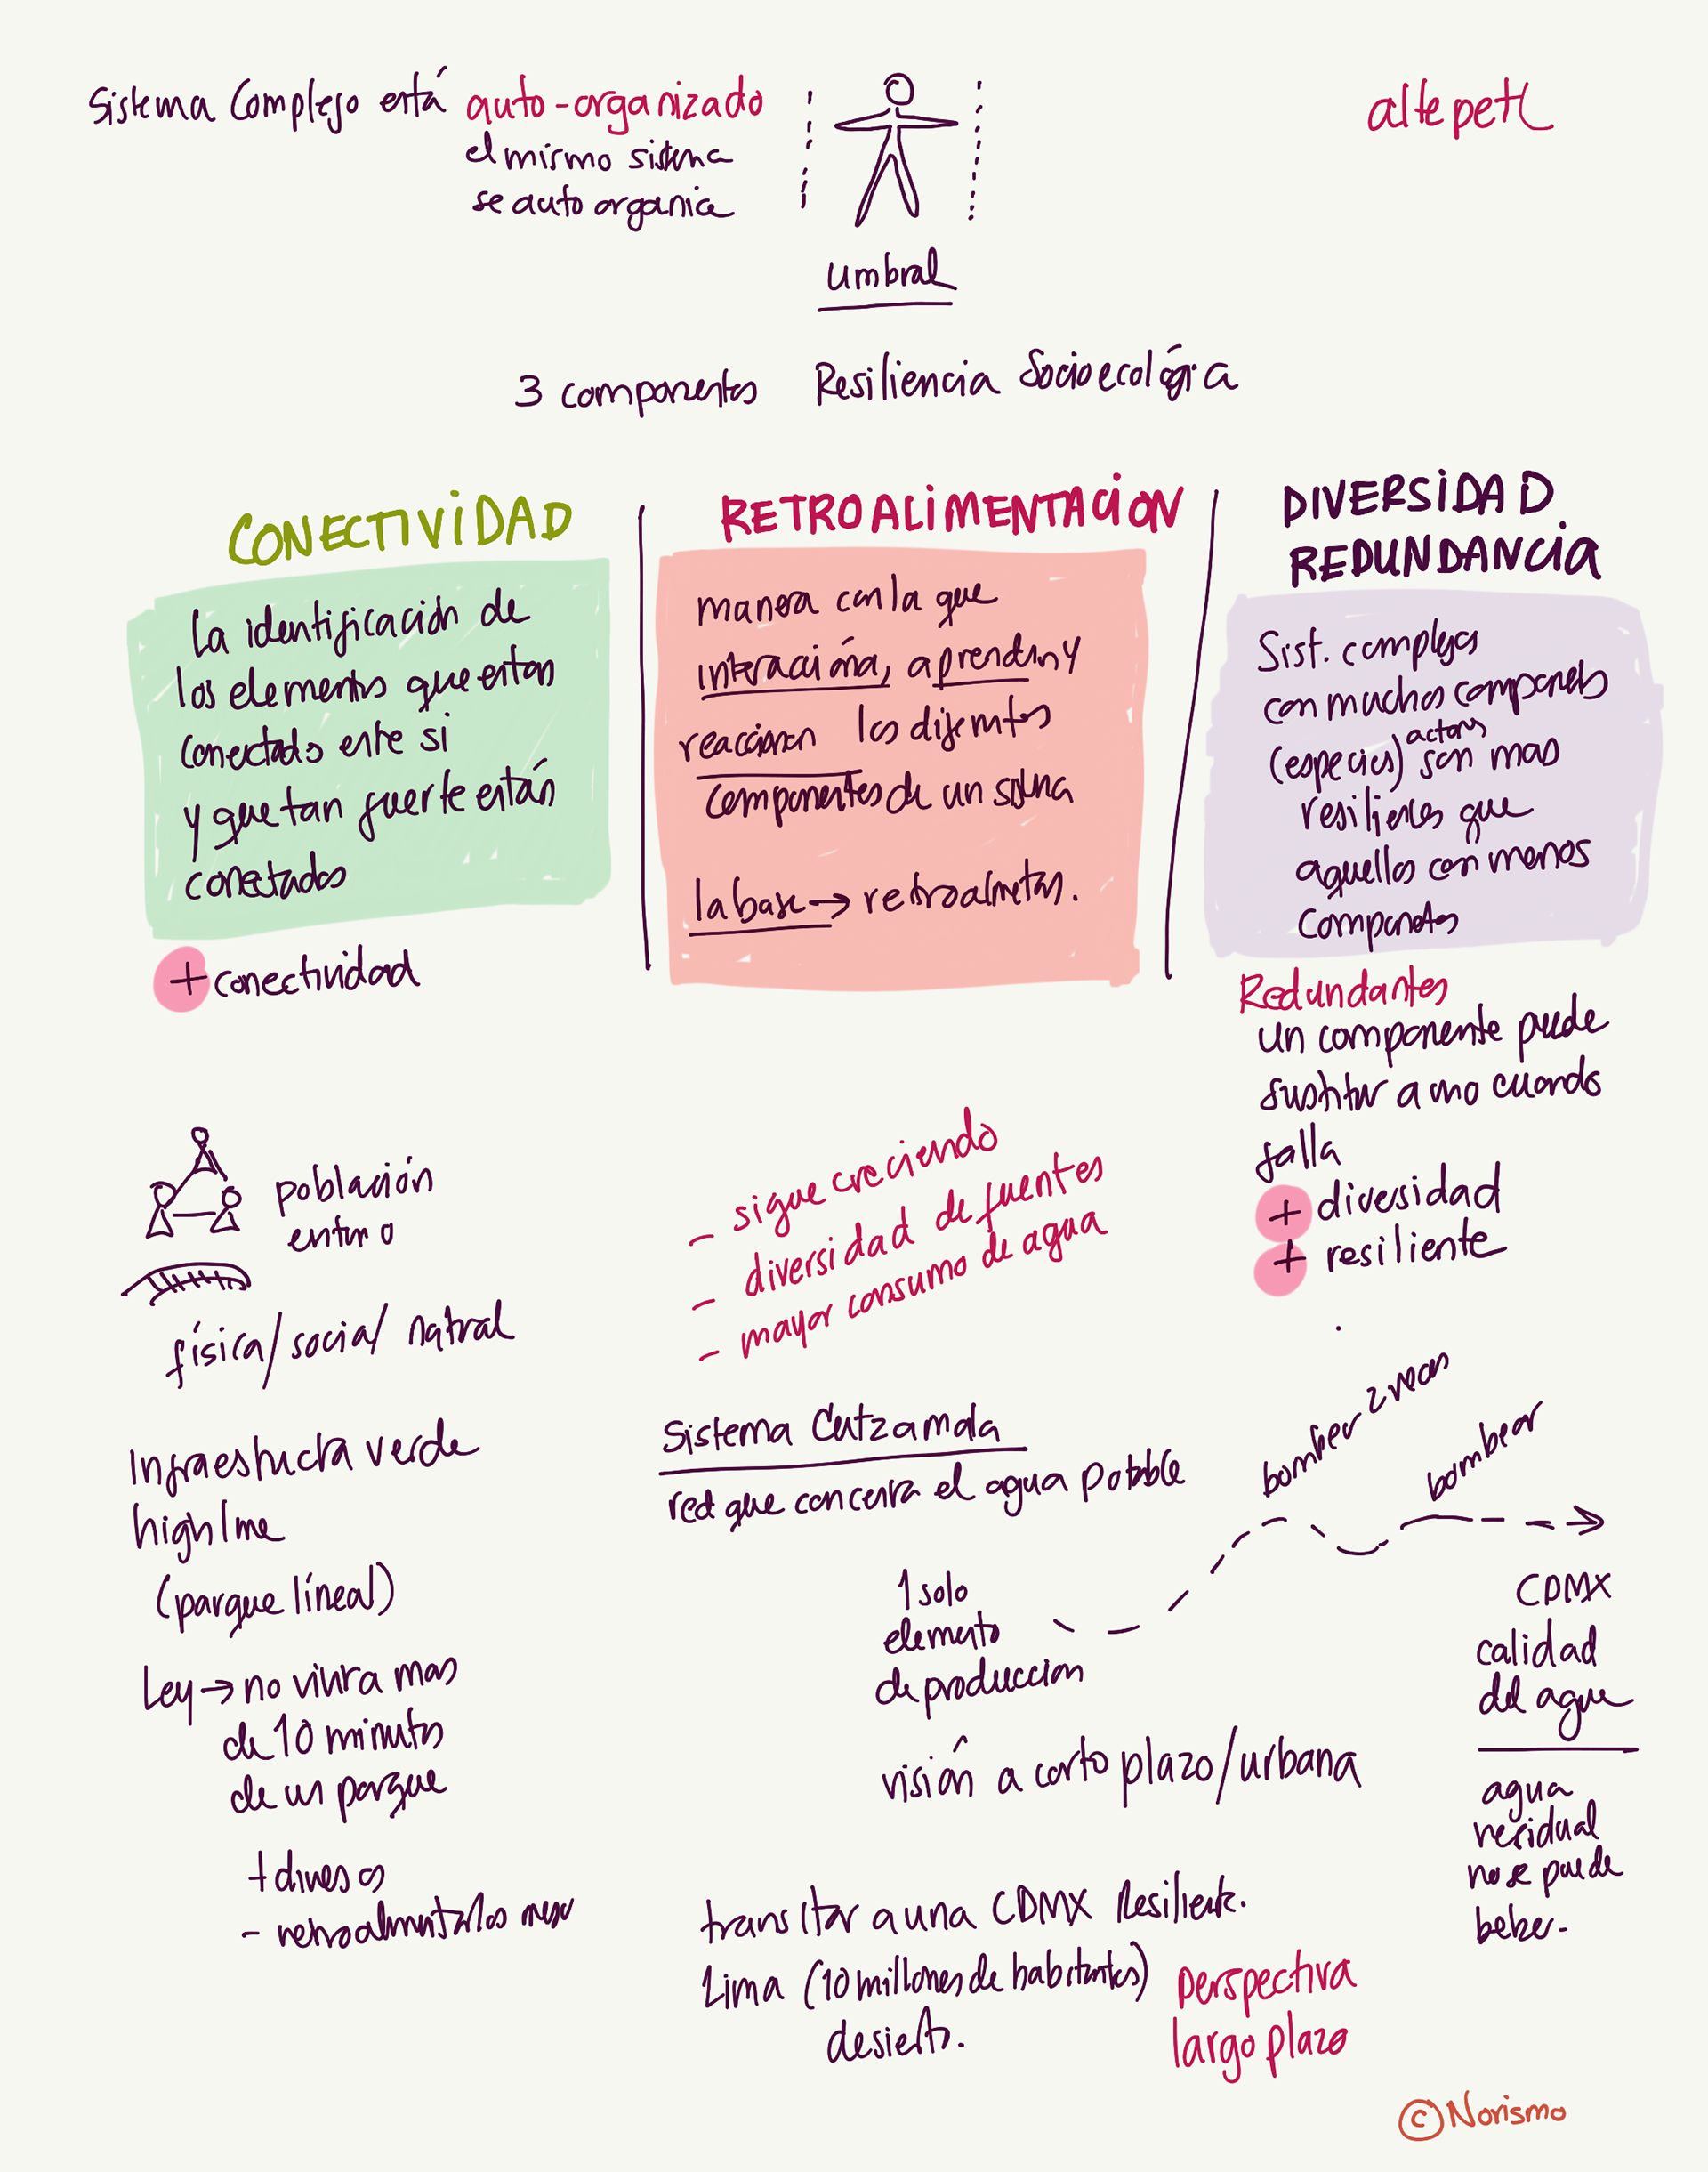 Sistema Complejo está auto-organizado
el mismo sistema
se auto organice
altepetl
umbral
3 componentes Resiliencia Socioecológica
CONECTIVIDAD
La identificación de
los elementos que estan
conectados entre si
y que tan fuerte están
conectados
+ conectividad
población
entorno
física/social/natural
Infraestructura verde
highline
(parque líneal)
Ley → no vivira mas
de 10 minutos
de un parque
+ diversos
- retroalimentarlos mejor
RETROALIMENTACION
manera con la que
interaciona, aprenden y
reaccionan los diferentes
componentes de un sistema
la base → retroalimetas.
- sigue creciendo
- diversidad de fuentes
- mayor consumo de agua
Sistema Cutzamala
red que concentra el agua potable
1 solo
elemento
de produccion
visión a corto plazo/urbana
transitar a una CDMX Resiliente.
Lima (10 millones de habitantes)
desierto.
perspectiva
largo plazo
DIVERSIDAD
REDUNDANCIA
Sist. complejos
con muchos componentes
(especies) actores son mas
resilientes que
aquellos con menos
componentes
Redundantes
un componente puede
sustituir a uno cuando
falla
+ diversidad
+ resiliente
bombear 2 veces
bombear
CDMX
calidad
del agua
agua
residual
no se puede
beber.
© Norismo